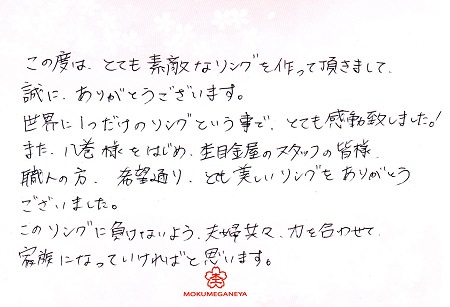 この度は、とても素敵なリングを作って頂きまして、
誠に、ありがとうございます。
世界に1つだけのリングという事で、とても感動致しました!
また、八巻様をはじめ、杢目金屋のスタッフの皆様、
職人の方、希望通り、とても美しいリングをありがとう
ございました。
このリングに負けないよう、夫婦共々、力を合わせて、
家族になっていければと思います。
MOKUMEGANEYA